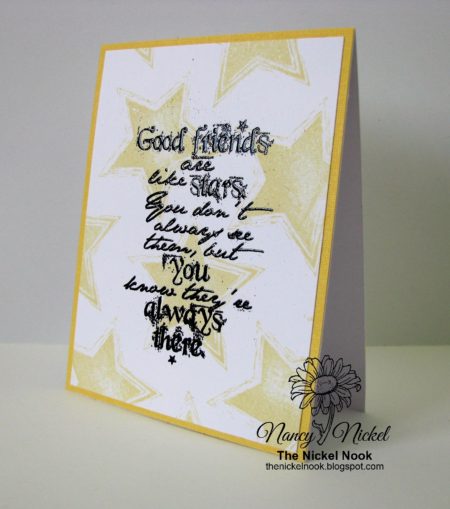 Good friends
are
like stars.
You don't
always see
them, but
You
know they're
always
there.
Nancy Nickel
The Nickel Nook
thenickelnook.blogspot.com